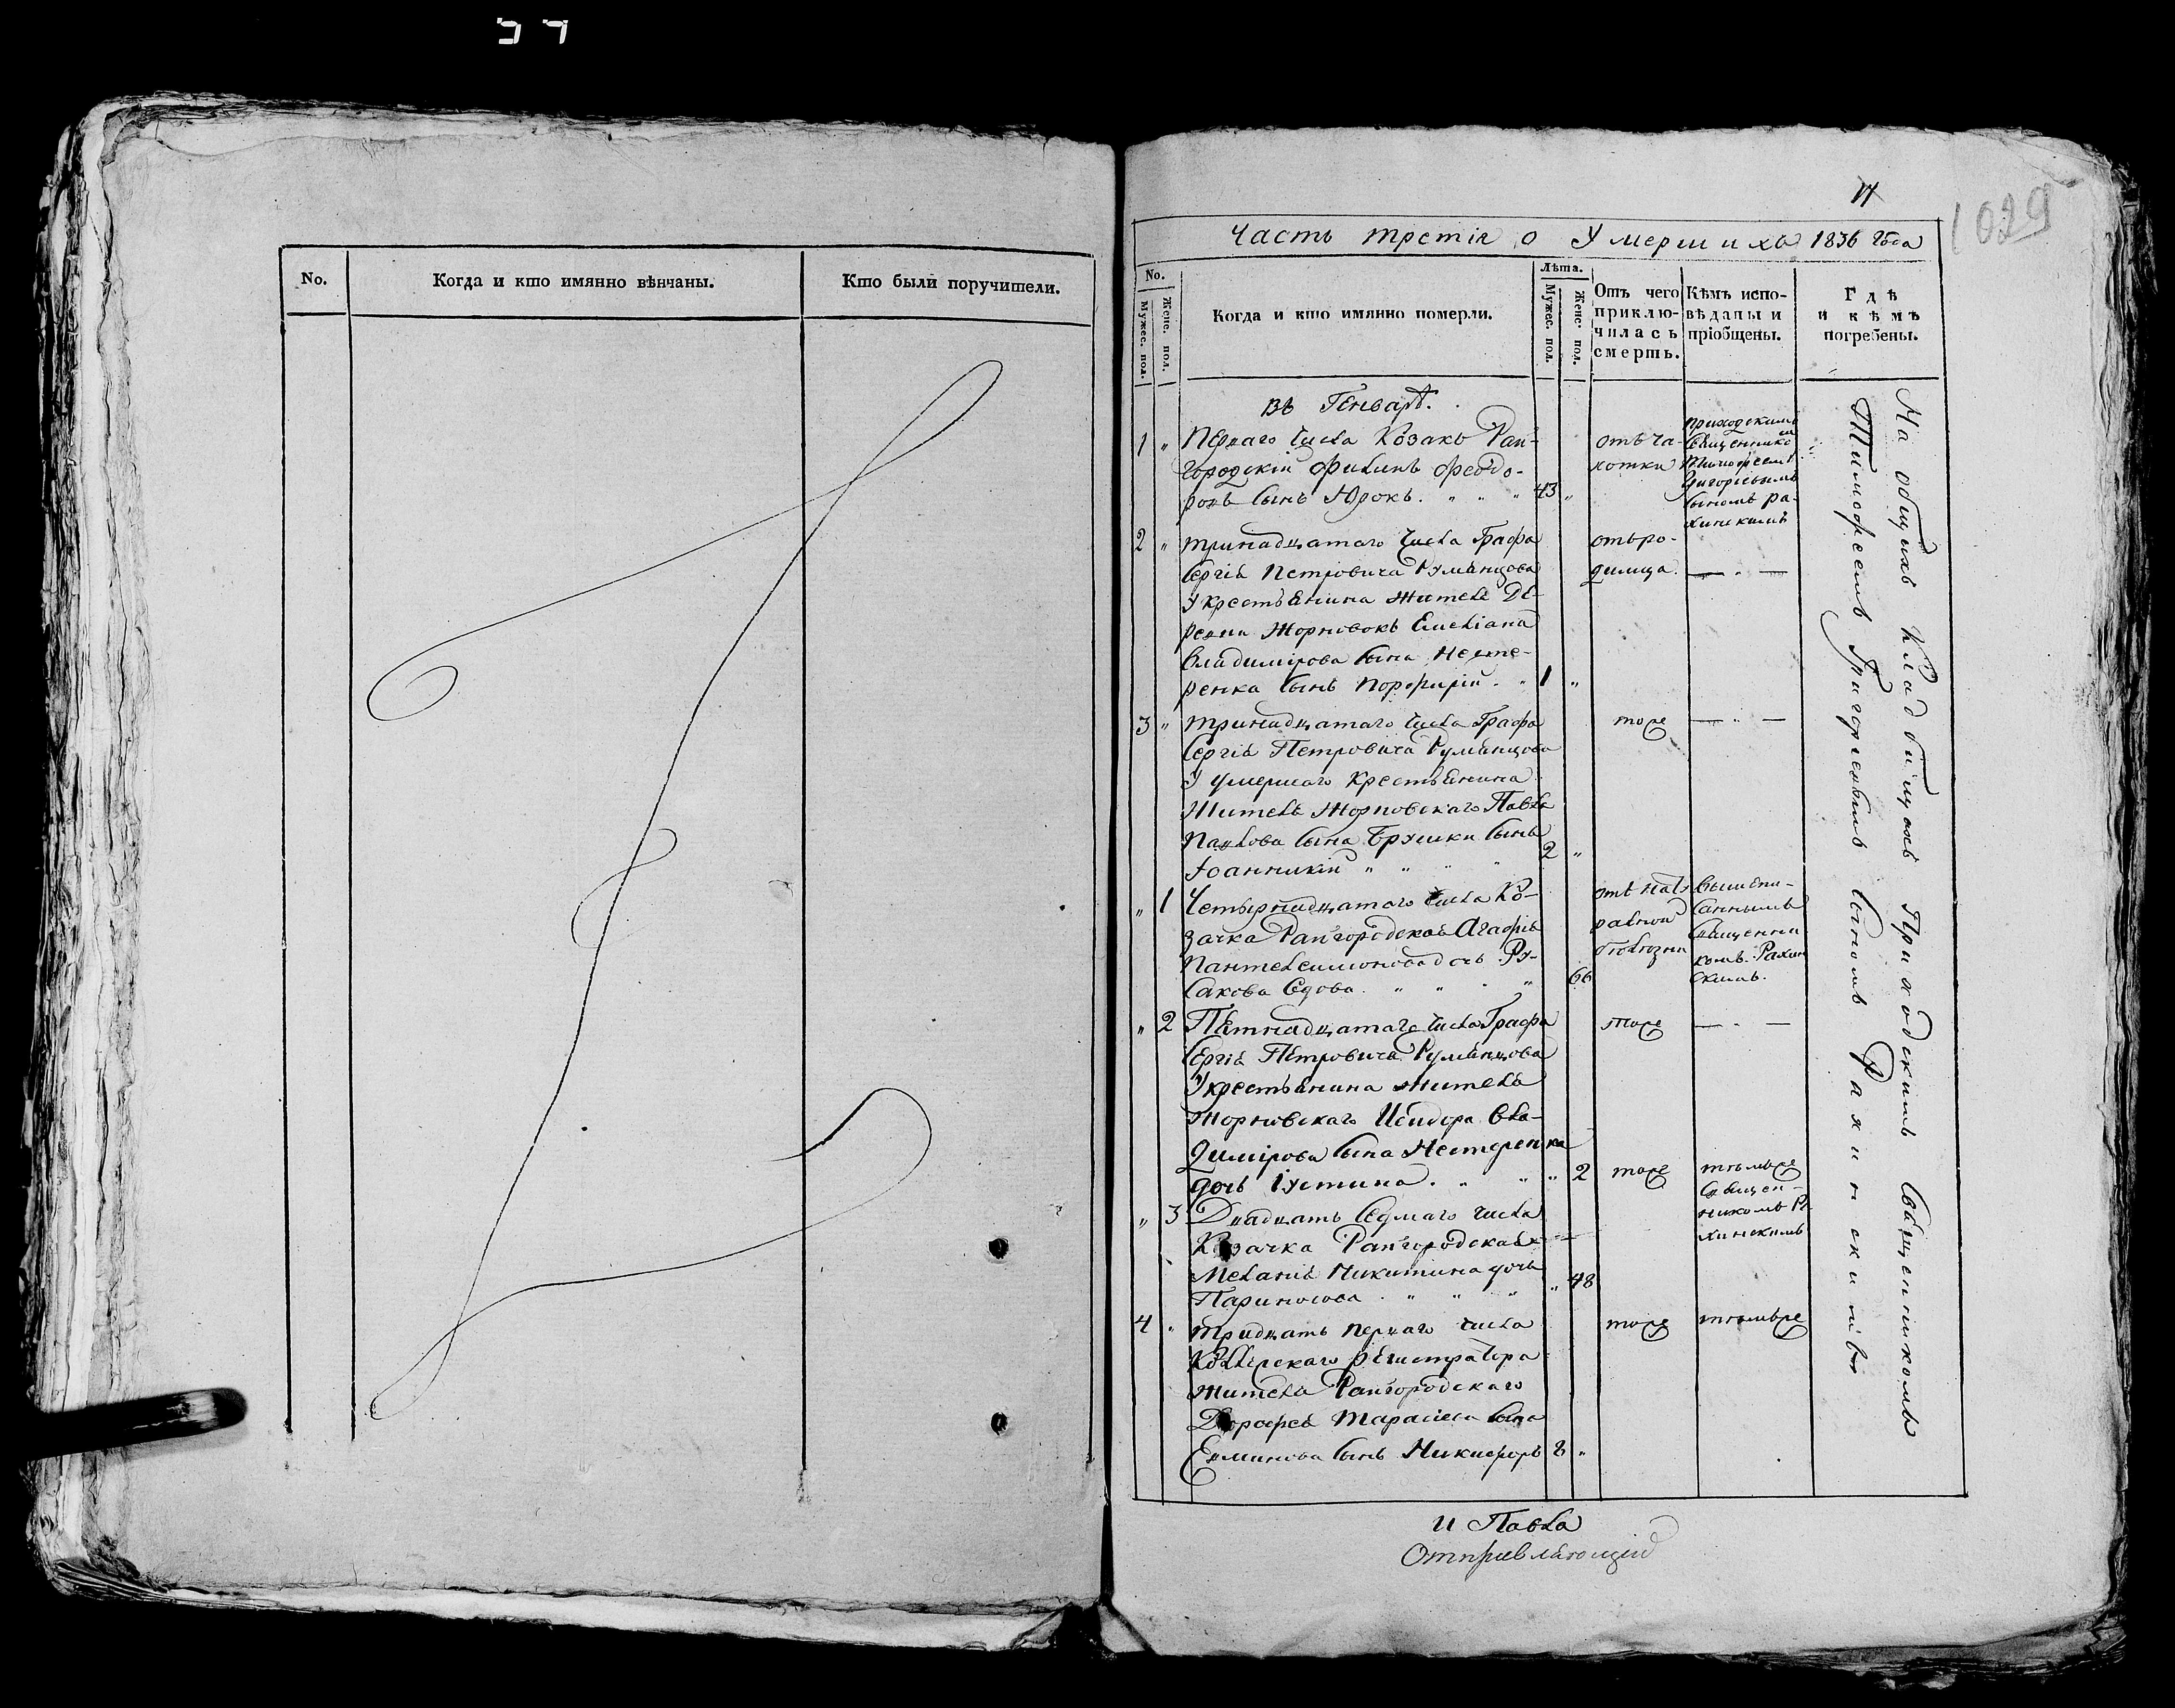 No.
Когда и кто имянно вѣнчаны.
Кто были поручители.
1029
Часть третія о Умершихъ 1836 года
No.
Мужес. пол.
Женс. пол.
Когда и кто имянно померли.
Лѣта.
Мужес. пол.
Женс. пол.
Отъ чего
приклю-
чилась
смерть.
Кѣмъ испо-
вѣданы и
пріобщены.
Гдѣ
и кѣмъ
погребены.
Въ Генварѣ.
1 " Перваго числа Козакъ Рап-
городскій Филипъ Феодо-
ровъ сынъ Юрокъ. " " " 43 "
отъ ча-
хотки
приходскимъ
священнико
мъ
Тимофеемъ
Григорьевымъ
сыномъ Ра-
хинскимъ
2 " тринадцатаго числа Графа
Сергія Петровича Румянцова
У крестьянина жителя Де-
ревни Жорновокъ Емеліана
Владимірова сына Несте-
ренка сынъ Порфирій. " 1 "
отъ ро-
димца. — " —
3 " тринадцатаго числа Графа
Сергія Петровича Румянцова
У умершаго крестьянина
Жителя Жорновскаго Павла
Павлова сына Брушки сынъ
Іоанникій " " " 2 "
тоже — " —
" 1 Четырнадцатаго числа Ко-
зачка Рапгородская Агафія
Пантелеимонова дочь Ру-
сакова вдова. " " " 66
отъ нату
ральной
болѣзни
вышепи-
саннымъ
священни
комъ Рахин
скимъ.
" 2 Пятнадцатаго числа Графа
Сергія Петровича Румянцова
У крестьянина жителя
Жорновскаго Исидора Вла-
димірова сына Нестеренка
дочь Іустина. " " " 2
тоже — " —
" 3 Двадцать седмаго числа
Козачка Рапгородская
Меланія Никитина дочь
Париносова " " " " 48
тоже
тѣмъже
священ-
никомъ Ра
хинскимъ
4 " тридцать перваго числа
Коллѣжскаго регистратора
жителя Рапгородскаго
Дорофея Тарасіева сына
Евминова сынъ Никифоръ 8 "
тоже тѣмъже
На общихъ кладбищахъ Приходскимъ Священникомъ
Тимофеемъ Григорьевымъ сыномъ Рахинскимъ
И Павла
Отправляющій